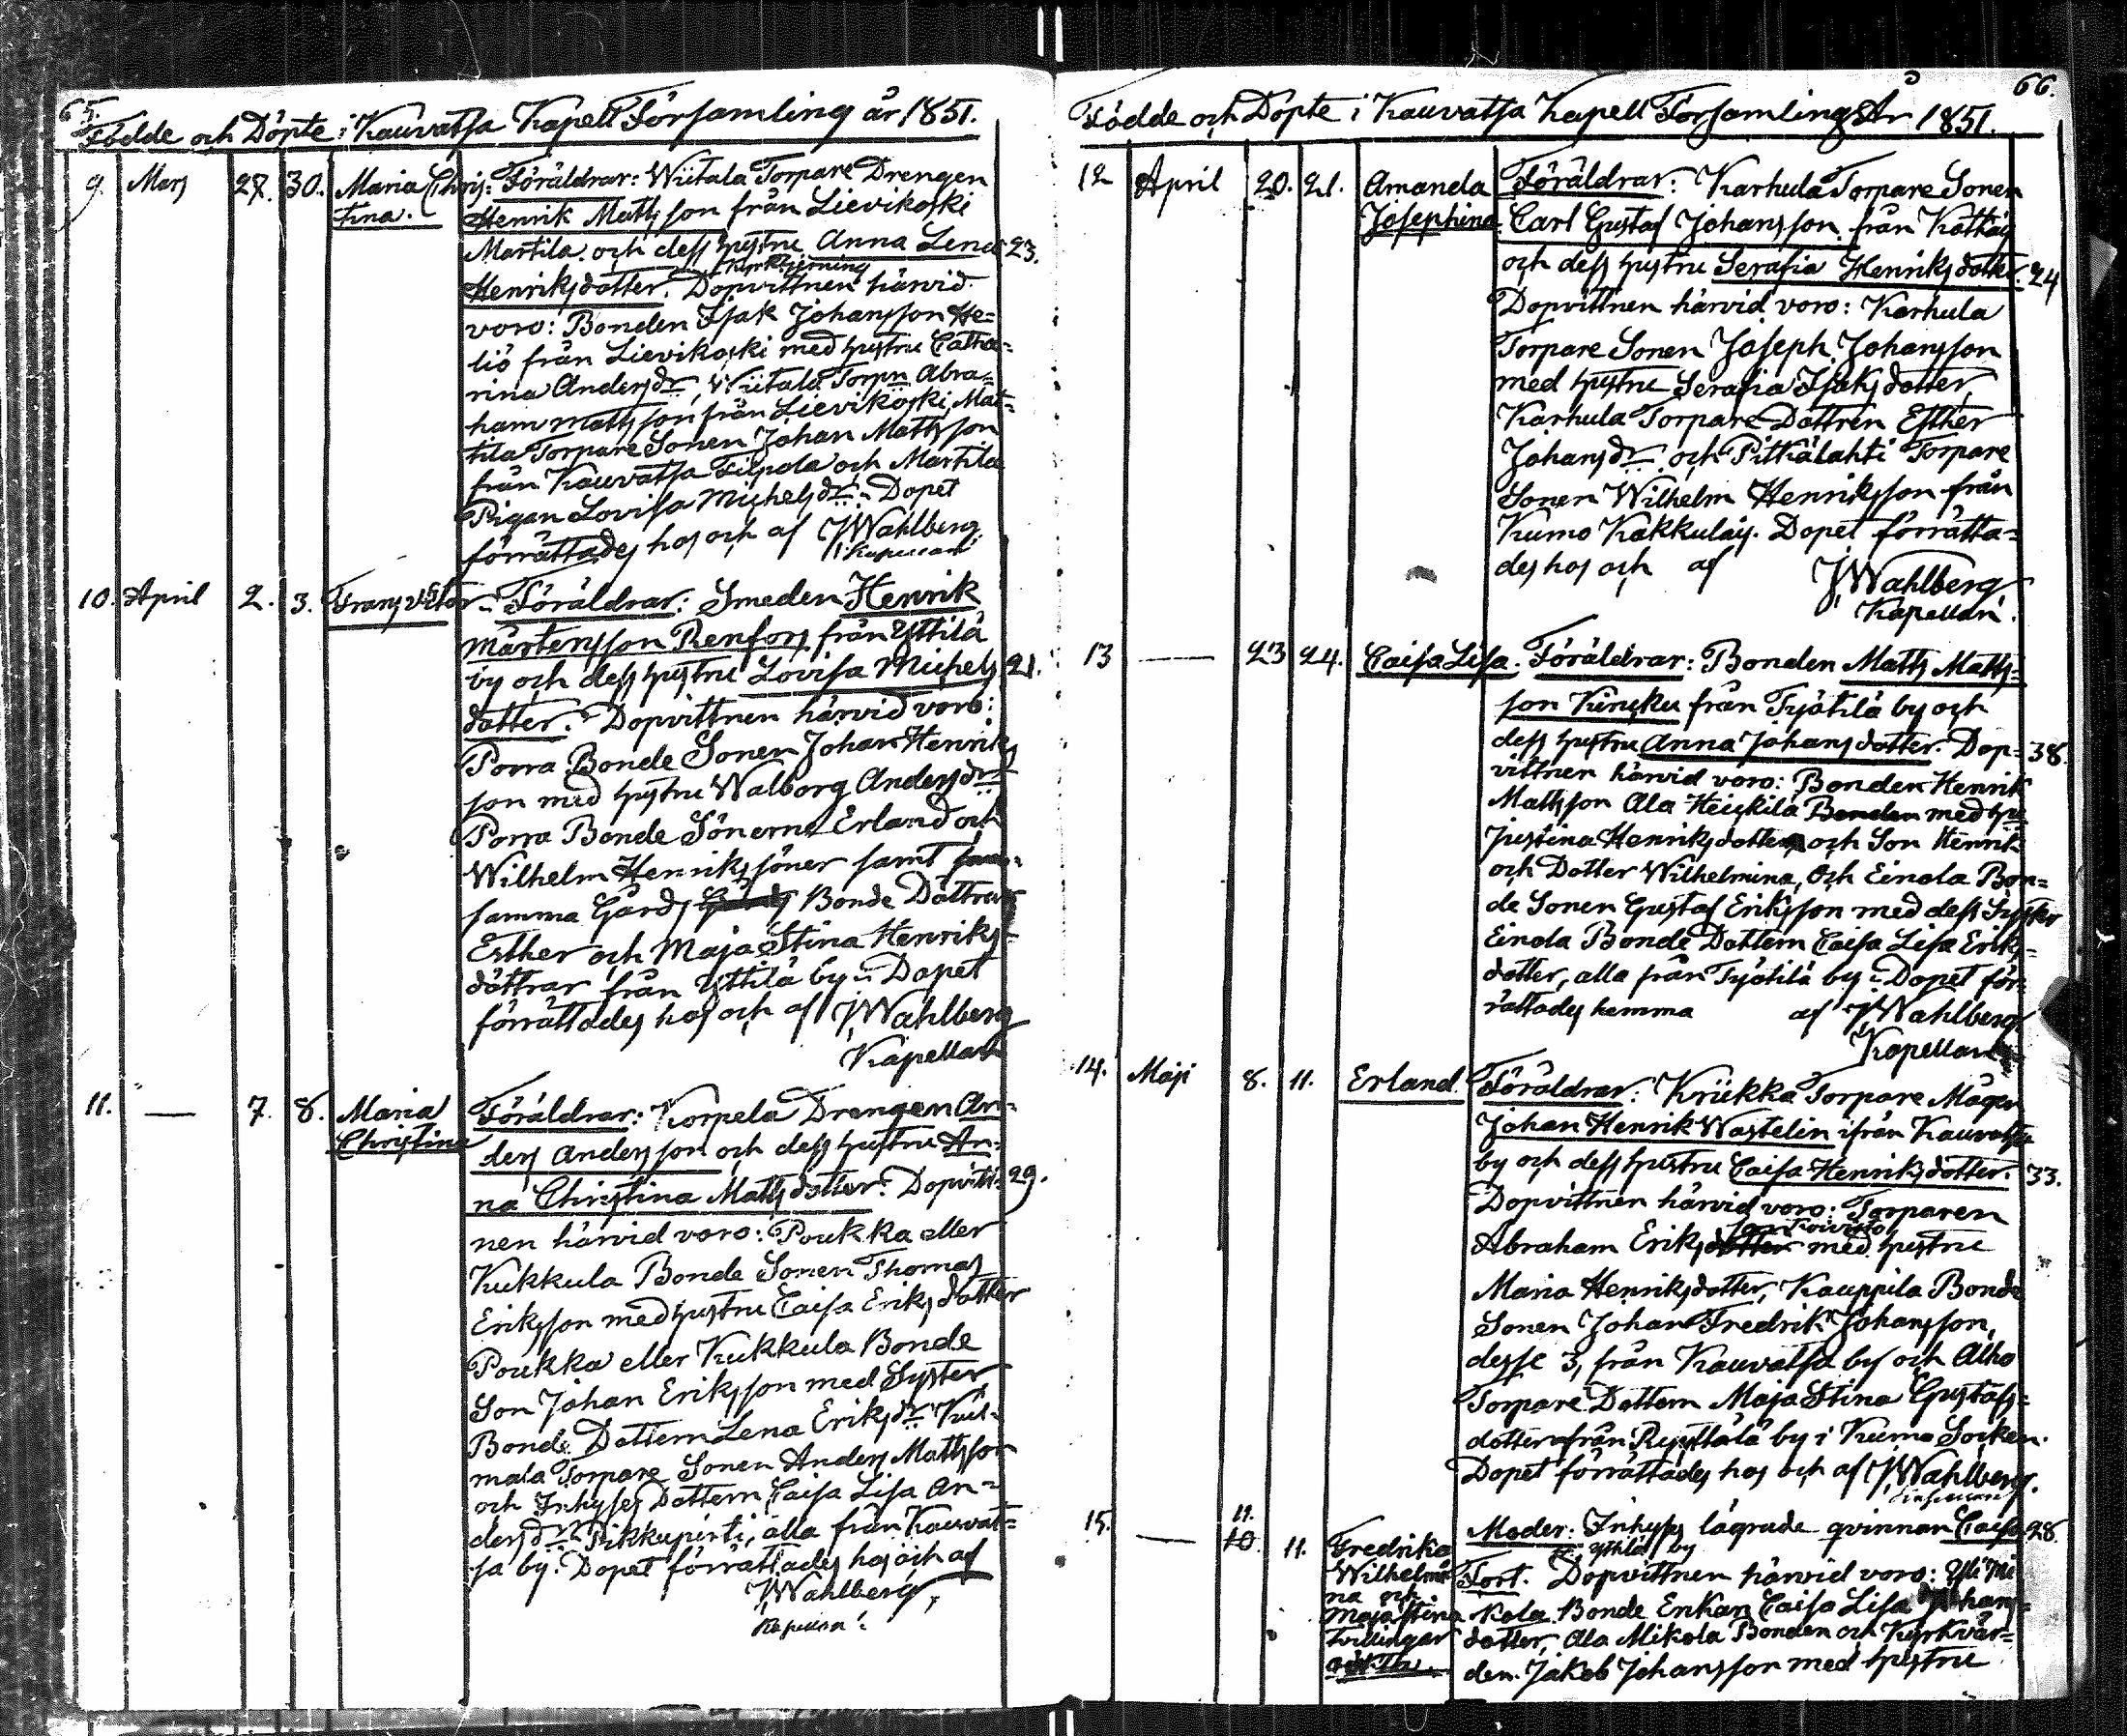 65.
Födde och Döpte i Kauvatsa Kapell Församling år 1851.
9. Mars 27. 30. Maria Chris: Föräldrar: Wiitala Torpare Drengen
tina. Henrik Mattsson från Lievikoski
Martila och dess hustru Anna Lena 23.
Kyrktjening
Henriksdotter. Dopvittnen härvid
voro: Bonden Isak Johansson He=
liö från Lievikoski med hustru Catha=
rina Andersdr, Wiitala Torpn Abra=
ham Mattsson från Lievikoski, Mat=
tila Torpare Sonen Johan Mattsson
från Kauvatsa Filpola och Martila
Pigan Lovisa Michelsdr. Dopet
förrättades hos och af J Wahlberg
Kapellan
10. April 2. 3. Frans Victor. Föräldrar: Smeden Henrik
Mårtensson Renfors från Yttilä
by och dess hustru Lovisa Michels 21.
dotter. Dopvittnen härvid voro:
Porra Bonde Sonen Johan Henriks
son med hustru Walborg Andersdr
Porra Bonde Sönerne Erland och
Wilhelm Henrikssöner samt
samma Gårds Bonde Döttrar
Esther och Maja Stina Henriks=
döttrar från Yttilä by. Dopet
förrättades hos och af J Wahlberg
Kapellan
11. — 7. 8. Maria Föräldrar: Korpela Drengen An=
Christina ders Andersson och dess hustru An=
na Christina Matsdotter. Dopvitt= 29.
nen härvid voro: Poukka eller
Kukkula Bonde Sonen Thomas
Eriksson med hustru Caisa Eriksdotter
Poukka eller Kukkula Bonde
Son Johan Eriksson med Syster
Bonde Dottern Lena Eriksdr Kul=
mala Torpare Sonen Anders Mattsson
och Inhyses Dottern Caisa Lisa An=
dersdr Pikkupirti, alla från Kauvat=
sa by. Dopet förrättades hos och af
J Wahlberg,
Kapellan.
66.
Födde och Döpte i Kauvatsa Kapell Församling År 1851.
12 April 20. 21. Amanda Föräldrar: Karhula Torpare Sonen
Josephina Carl Gustaf Johansson från
och dess hustru Serafia Henriksdotter. 24
Dopvittnen härvid voro: Karhula
Torpare Sonen Joseph Johansson
med hustru Serafia Isaksdotter,
Karhula Torpare Dottren Esther
Johansdr och Pitkälahti Torpare
Sonen Wilhelm Henriksson från
Kumo Kakkulais. Dopet förrätta=
des hos och af J Wahlberg
Kapellan.
13 — 23 24. Caisa Lisa. Föräldrar: Bonden Matts Matts=
son Kincku från Työtilä by och
dess hustru Anna Johansdotter. Dop= 38.
vittnen härvid voro: Bonden Henrik
Mattsson Ala Heickilä Bonden med hu
Justina Henriksdotter och Son Henrik
och Dotter Wilhelmina, och Einola Bon=
de Sonen Gustaf Eriksson med dess Syster
Einola Bonde Dottern Caisa Lisa Eriks=
dotter, alla från Työtilä by. Dopet för=
rättades hemma af J Wahlberg
Kapellan
14. Maji 8. 11. Erland. Föräldrar: Kriikka Torpare Mågen
Johan Henrik Wastelin ifrån Kauvatsa
by och dess hustru Caisa Henriksdotter. 33.
Dopvittnen härvid voro: Torparen
son Koivisto
Abraham Eriksdotter med hustru
Maria Henriksdotter, Kauppila Bonde
Sonen Johan Fredrik Johansson,
desse 3, från Kauvatsa by och Alho
Torpare Dottern Maja Stina Gustafs=
dotter från Ryyttälä by i Kumo Socken.
Dopet förrättades hos och af J Wahlberg.
Kapellan
15. — 11. 10 11. Fredrika Moder: Inhyses lägrade qvinnan Caisa 28.
Yttilä by
Wilhelmi Tort. Dopvittnen härvid voro: Yli Mi
na och
Maja Stina kola Bonde Enkan Caisa Lisa Johans=
tvillingar dotter, Ala Mikola Bonden och Kyrkvär=
den Jakob Johansson med hustru